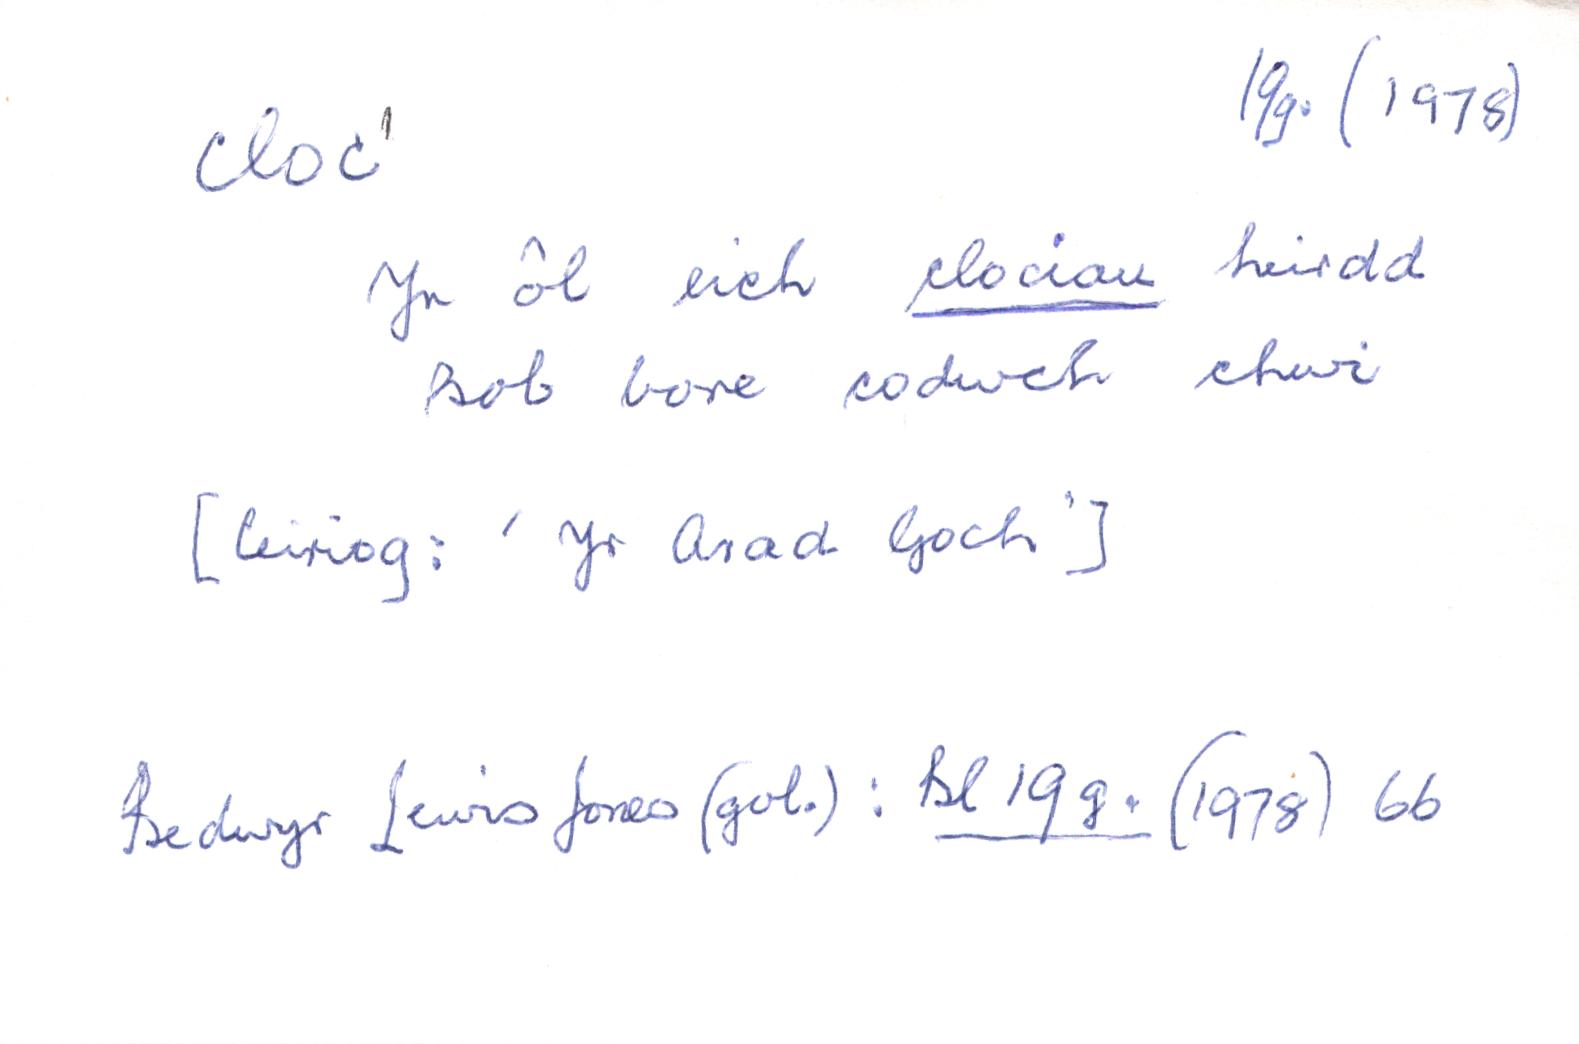 cloc¹
19g. (1978)
Yn ôl eich clociau heirdd
Bob bore codwch chwi
[Ceiriog: 'Yr Arad Goch']
Bedwyr Lewis Jones (gol.): Bl 19g. (1978) 66